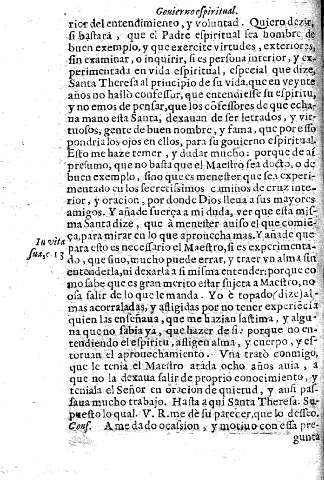 Gouierno espiritual.
rior del entendimiento, y voluntad. Quiero dezir,
si bastará, que el Padre espiritual sea hombre, de
buen exemplo, y que exercite virtudes, exteriores,
sin examinar, o inquirir, si es persona interior, y ex-
perimentada en vida espiritual, especial que dize,
Santa Theresa al principio de su vida, que en veynte
años no halló confessor, que entendiesse su espiritu,
y no emos de pensar, que los côfessores de que echa-
ua mano esta Santa, dexauan de ser letrados, y vir-
tuosos, gente de buen nombre, y fama, que por esso
pondria los ojos en ellos, para su gouierno espiritual.
Esto me haze temer, y dudar mucho: porque de aì
presumo, que no basta que el Maestro sea docto, o de
buen exemplo, sino que es menester que sea experi-
mentado en los secretissimos caminos de cruz inte-
rior, y oracion, por donde Dios lleua a sus mayores
amigos. Y añade fuerça a mi duda, ver que esta mis-
ma Santa dize, que à menester auiso el que comiê-
ça, para mirar en lo que aprouecha mas. Y añade que
In vita
para esto es necessario el Maestro, si es experimenta-
sua, c. 13
do, que sino, mucho puede errar, y traer vn alma sin
entenderla, ni dexarla a si misma entender: porque co
mo sabe que es gran merito estar sujeta a Maestro, no
osa salir de lo que le manda. Yo è topado (dize) al-
mas acorraladas, y afligidas por no tener experiécia
quien las enseñaua, que me hazian lastima, y algu-
na que no sabia ya, que hazer de si: porque no en-
tendiendo el espiritu, afligen alma, y cuerpo, y es-
toruan el aprouechamiento. Vna trató conmigo,
que le tenia el Maestro atada ocho años auia, a
que no la dexaua salir de proprio conocimiento, y
teniala el Señor en oracion de quietud, y ansi pas-
saua mucho trabajo. Hasta aqui Santa Theresa. Su-
puesto lo qual. V. R. me dè su parecer, que lo desseo.
Conf. A me dado ocassion, y motiuo con essa pre-
gunta